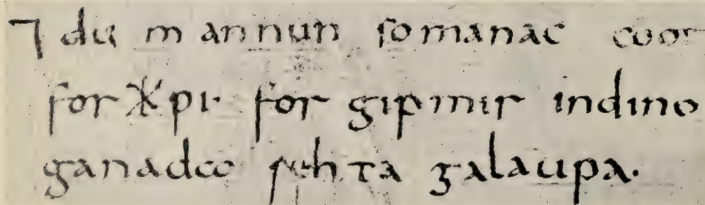 ⁊ du m annun somanac coot
forᛡpi· for gipmir indino
ganada rehta galaupa.